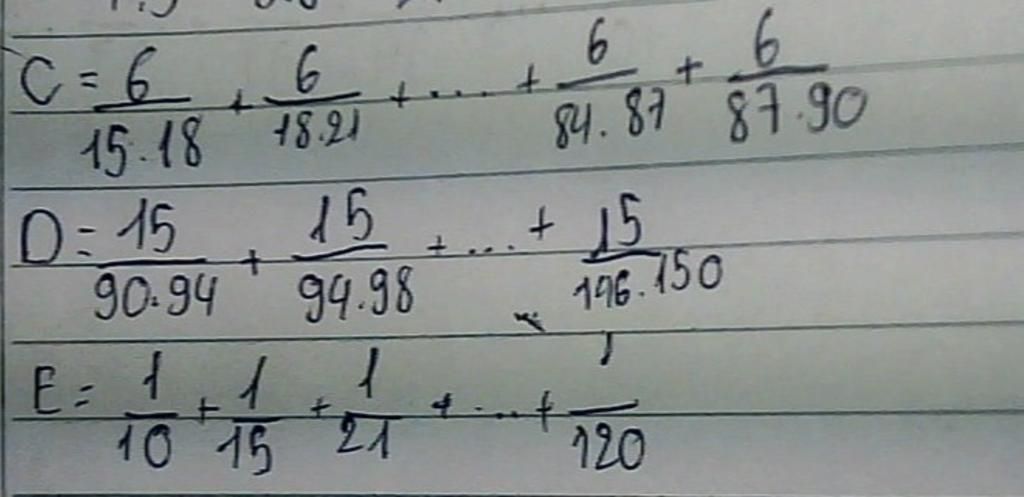 C = 6/15.18 + 6/18.21 + .... + 6/84.87 + 6/87.90
D = 15/90.94 + 15/94.98 + ... + 15/146.150
E = 1/10 + 1/15 + 1/21 + ... + 1/120